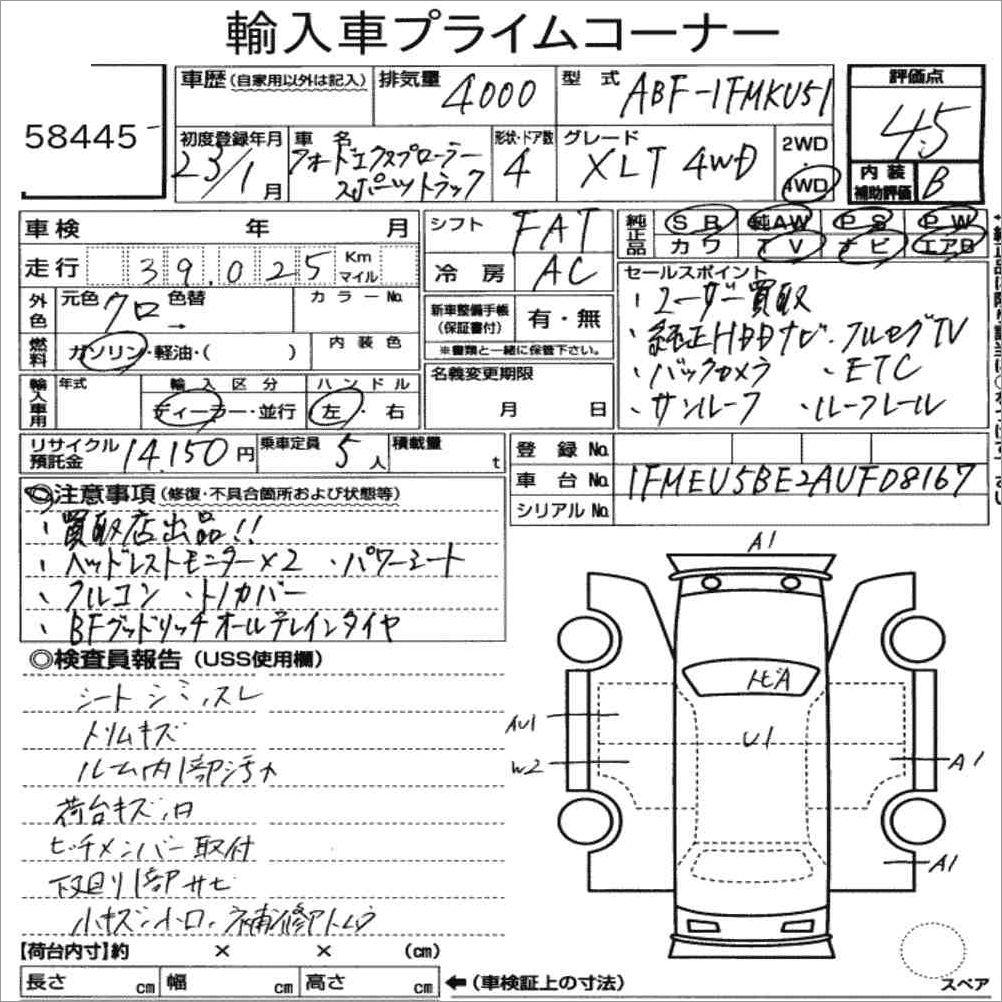 輸入車プライムコーナー
58445
車歴 (自家用以外は記入)
排気量 4000
型式 ABF-1FMKU51
評価点 4.5
初度登録年月 23/1月
車名 フォードエクスプローラースポーツトラック
形状・ドア数 4
グレード XLT 4WD
2WD・4WD
内装補助評価 B
車検 年 月
シフト FAT
純正品 SR 純AW PS PW
カワ TV ナビ エアB
走行 39,025 Km マイル
冷房 AC
セールスポイント
・ユーザー買取
・純正HDDナビ・フルセグTV
・バックカメラ ・ETC
・サンルーフ ・ルーフレール
外色 元色 クロ 色替 → カラーNo.
新車整備手帳(保証書付) 有・無
※書類と一緒に保管下さい。
燃料 ガソリン・軽油・( ) 内装色
名義変更期限 月 日
輸入車用 年式 輸入区分 ディーラー・並行 ハンドル 左・右
リサイクル預託金 14,150円 乗車定員 5人 積載量 t
登録No.
車台No. 1FMEU5BE2AUF08167
シリアルNo.
◎注意事項 (修復・不具合箇所および状態等)
・買取店出品!!
・ヘッドレストモニター×2 ・パワーシート
・フルコン ・トノカバー
・BFグッドリッチオールテレインタイヤ
◎検査員報告 (USS使用欄)
シートシミ,スレ
トリムキズ
ルーム内1部汚れ
荷台キズ,凹
ヒッチメンバー取付
下回り1部サビ
小キズ・小凹・補修アトあり
A1
トビA
AU1
U1
W2
A1
A1
【荷台内寸】約 × × (cm)
長さ cm 幅 cm 高さ cm ←(車検証上の寸法)
スペア